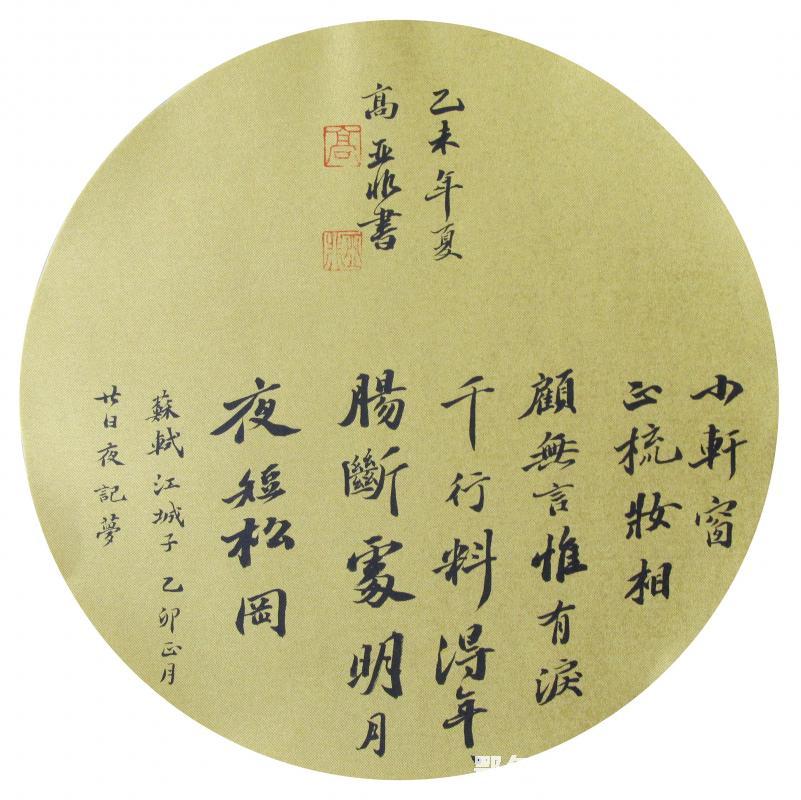 小軒窗
正梳妝相
顧無言惟有淚
千行料得年
腸斷處明月
夜短松岡
蘇軾江城子 乙卯正月
廿日夜記夢
乙未年夏
髙亚非書
高